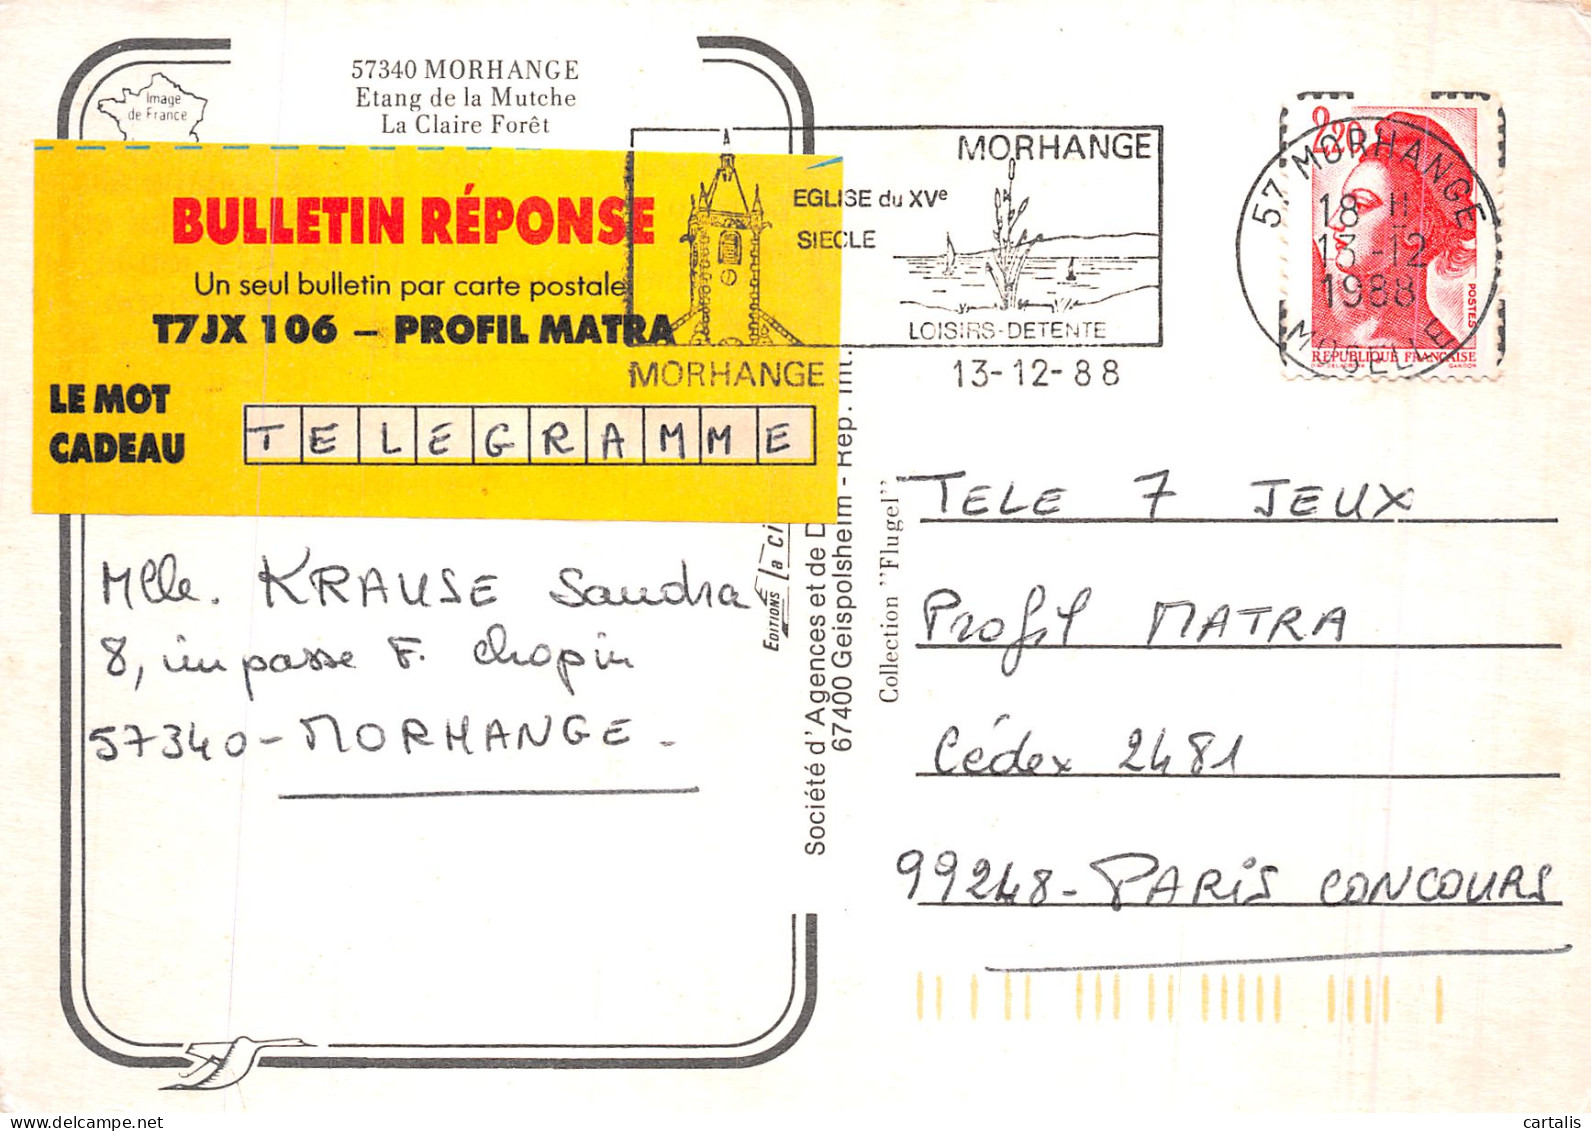 57340 MORHANGE
Etang de la Mutche
La Claire Forêt
Image
de France
BULLETIN RÉPONSE
Un seul bulletin par carte postale
T7JX 106 – PROFIL MATRA
LE MOT
CADEAU
TELEGRAMME
MORHANGE
EGLISE du XVe
SIECLE
LOISIRS-DETENTE
MORHANGE
13-12-88
57 MORHANGE
18 H
13-12
1988
MOSELLE
2,20
POSTES
REPUBLIQUE FRANÇAISE
D'AP. DELACROIX
GANDON
Mlle. KRAUSE Sandra
8, impasse F. Chopin
57340-MORHANGE.
EDITIONS la Ci
Société d'Agences et de D
67400 Geispolsheim - Rep. Int.
Collection "Flugel"
TELE 7 JEUX
Profil MATRA
Cédex 2481
99248-PARIS CONCOURS
cartalis